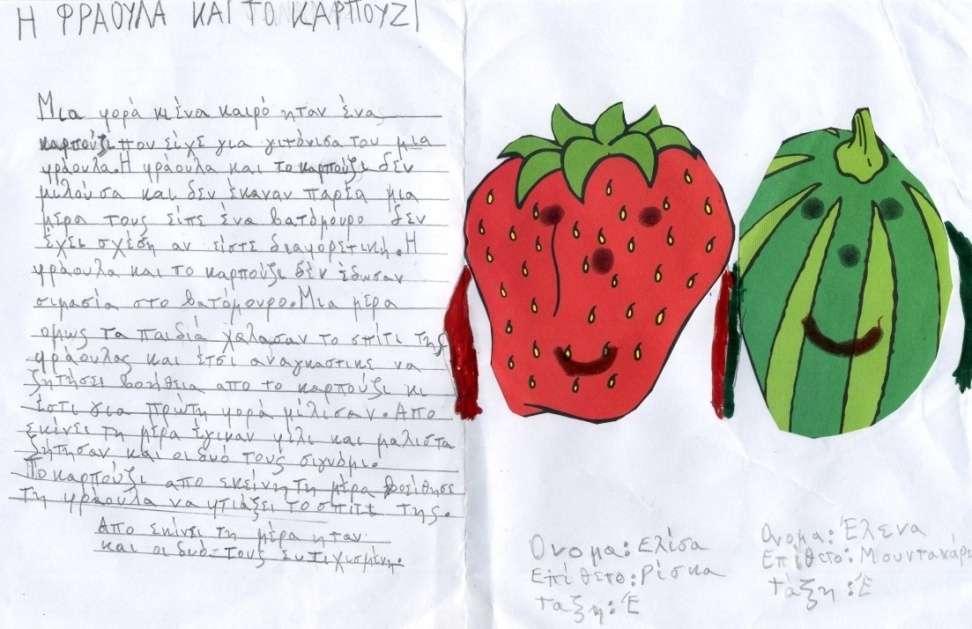 Η ΦΡΑΟΥΛΑ ΚΑΙ ΤΟ ΚΑΡΠΟΥΖΙ
Μια φορά κι ένα καιρό ηταν ένα
καρπούζι που είχε για γιτόνισα του μια
φράουλα. Η φράουλα και το καρπούζι δεν
μιλούσα και δεν έκαναν παρέα μια
μέρα τους είπε ένα βατόμουρο δεν
έχει σχέδη αν είστε διαφορετικη. Η
φράουλα και το καρπούζι δεν έδωσαν
σιμασία στο βατόμουρο. Μια μέρα
ομως τα παιδιά χάλασαν το σπίτι της
φράουλας και έτσι αναγκαστικε να
ζητήσει βοήθεια απο το καρπούζι κι
έστι για πρώτη φορά μίλισαν. Απο
εκείνει τη μέρα έγιναν φίλι και μαλιστα
ζήτησαν και οι δυό τους σιγνόμι.
Το καρπούζι απο εκείνη τη μέρα βοείθησε
τη φράουλα να φτιάξει το σπίτι της.
Απο εκίνει τη μέρα ηταν
και οι δυό τους ευτιχισμένη.
Ονομα: Ελίσα
Επίθετο: Ρίσκα
τάξη: Έ
Ονομα: Έλενα
Επίθετο: Μουντανάρ
τάξη: Έ